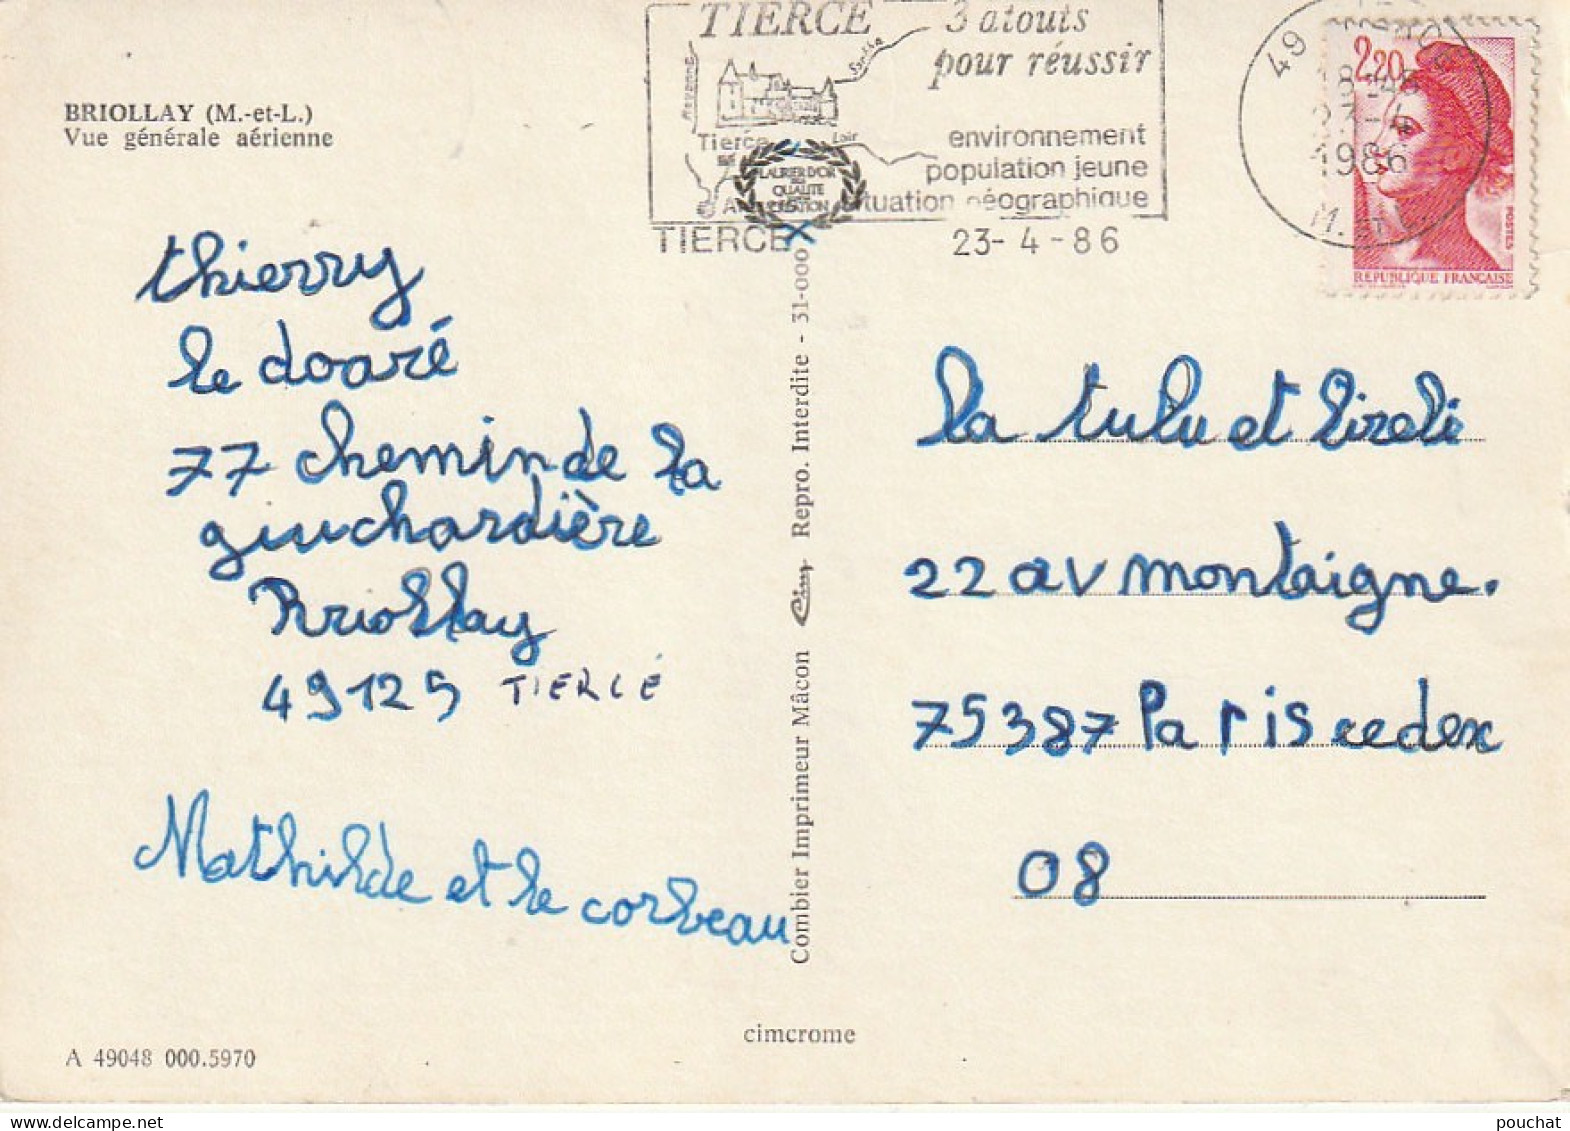 TIERCE
3 atouts
pour réussir
Mayenne
Sarthe
Loir
Tierce
environnement
population jeune
situation géographique
LAURIER D'OR
QUALITE
TIERCE
23-4-86
18 H
23-4
1986
M. ET L.
49
2,20
POSTES
REPUBLIQUE FRANÇAISE
BRIOLLAY (M.-et-L.)
Vue générale aérienne
thierry
le doaré
77 chemin de la
guichardière
Briollay
49125 TIERCÉ
Mathilde et le corbeau
Combier Imprimeur Mâcon Cim Repro. Interdite - 31-000
la tulu et lireli
22 av montaigne.
75387 Paris cedex
08
cimcrome
A 49048 000.5970
pouchat